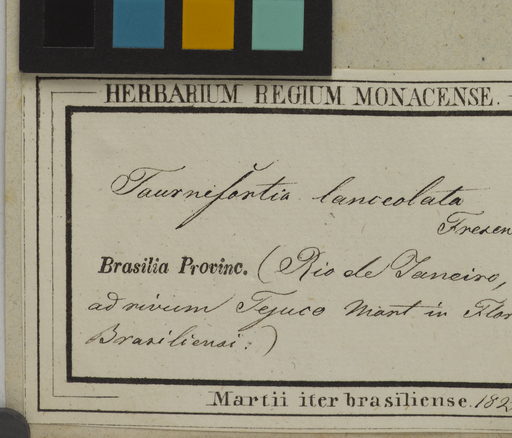 HERBARIUM REGIUM MONACENSE.
Tournefortia lanceolata
Fresen
Brasilia Provinc. (Rio de Janeiro,
ad rivum Tejuco Mart in Flor
Brasiliensi.)
Martii iter brasiliense. 182